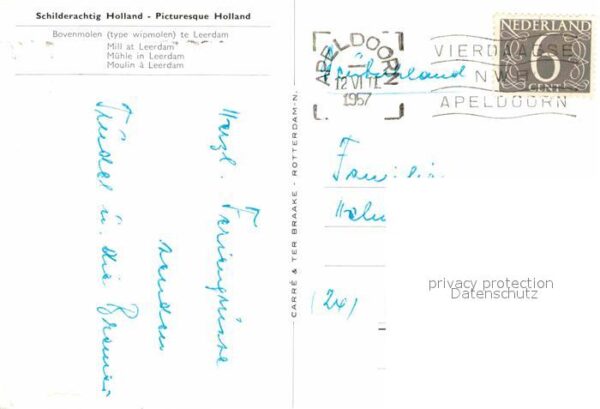 Schilderachtig Holland - Picturesque Holland
Bovenmolen (type wipmolen) te Leerdam
Mill at Leerdam
Mühle in Leerdam
Moulin à Leerdam
Herzl. Feriengrüsse
senden
Trudel u. die
CARRÉ & TER BRAAKE - ROTTERDAM-N.
APELDOORN
1957
VIERDAAGSE
APELDOORN
NEDERLAND
6
CENT
Familie
(24)
privacy protection
Datenschutz